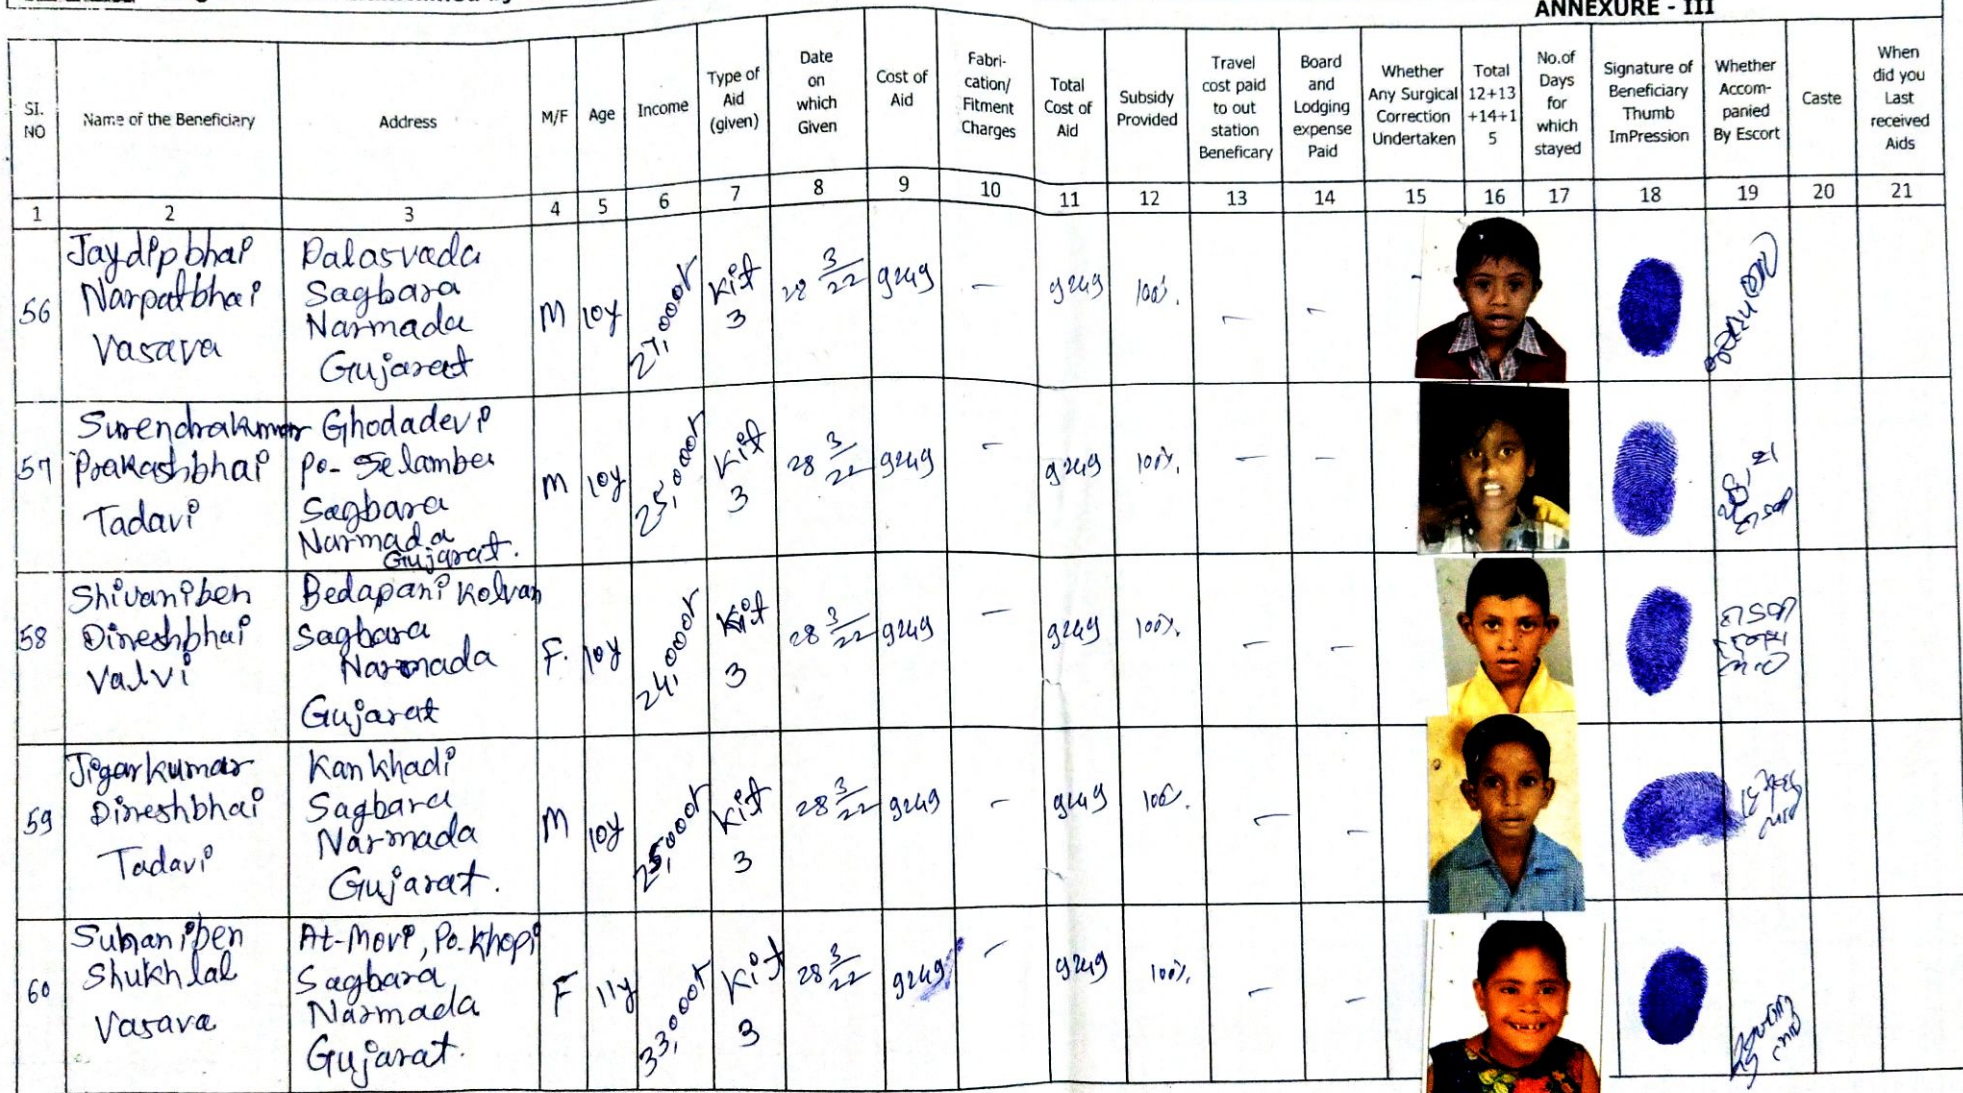 ANNEXURE - III
SI. NO
Name of the Beneficiary
Address
M/F
Age
Income
Type of Aid (given)
Date on which Given
Cost of Aid
Fabri-cation/ Fitment Charges
Total Cost of Aid
Subsidy Provided
Travel cost paid to out station Beneficary
Board and Lodging expense Paid
Whether Any Surgical Correction Undertaken
Total 12+13 +14+1 5
No.of Days for which stayed
Signature of Beneficiary Thumb ImPression
Whether Accom-panied By Escort
Caste
When did you Last received Aids
1 2 3 4 5 6 7 8 9 10 11 12 13 14 15 16 17 18 19 20 21
56
Jaydipbhai
Narpatbhai
Vasava
Dalasvada
Sagbara
Narmada
Gujarat
M 10y 27,000/-
Kit
3
28 3/22 9249 - 9249 100%. - -
57
Surendrakumar
Prakashbhai
Tadavi
Ghodadevi
Po- Selamba
Sagbara
Narmada
Gujarat.
M 10y 25,000/-
Kit
3
28 3/22 9249 - 9249 100%. - -
58
Shivaniben
Dineshbhai
Valvi
Bedapani Kolvan
Sagbara
Narmada
Gujarat
F. 10y 24,000/-
Kit
3
28 3/22 9249 - 9249 100%. - -
59
Jigarkumar
Dineshbhai
Tadavi
Kankhadi
Sagbara
Narmada
Gujarat.
M 10y 25,000/-
Kit
3
28 3/22 9249 - 9249 100%. - -
60
Shukhlal
Vasava
At-Movi, Po-Khopi
Sagbara
Narmada
Gujarat.
F 11y 33,000/-
Kit
3
28 3/22 9249 - 9249 100%. - -